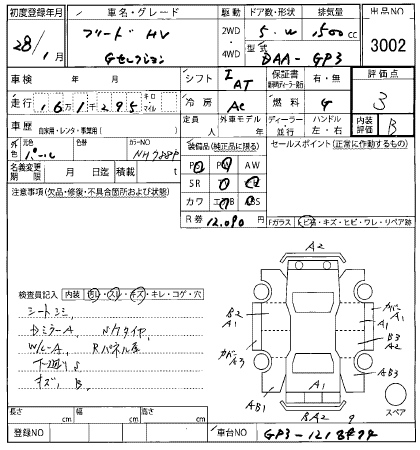 初度登録年月 車名・グレード 駆動 ドア数・形状 排気量 出品NO
28/1 フリード HV 2WD 5.W 1,500cc 3002
Gセレクション 4WD 型式 DAA-GP3
車検 年 月 シフト I AT 保証書 有・無 評価点
走行 161,295 キロ マイル 冷房 AC 燃料 G 3
車歴 自家用・レンタ・事業用( ) 定員 人 外車モデル 年 ディーラー 並行 ハンドル 左・右 内装評価 B
外色 元色 パール 色替 カラーNO NH788P
装備品(純正品に限る) セールスポイント(正常に作動するもの)
PS PW AW
名義変更期限 月 日迄 積載 t SR
注意事項(欠品・修復・不具合箇所および状態) カワ
R券 12,090 Fガラス トビ石・キズ・ヒビ・ワレ・リペア跡
A2
検査員記入 内装 汚レ・スレ・キズ・キレ・コゲ・穴
シートシミ B2 A1 カバー A1 A1
DミラーA Nタイヤ B3 A2
W/L-A Rパネル カバー A3 AB3
下廻りS A1
キズ, B AB1 スペア
BA2
長さ cm 幅 cm 高さ cm
登録NO 車台NO